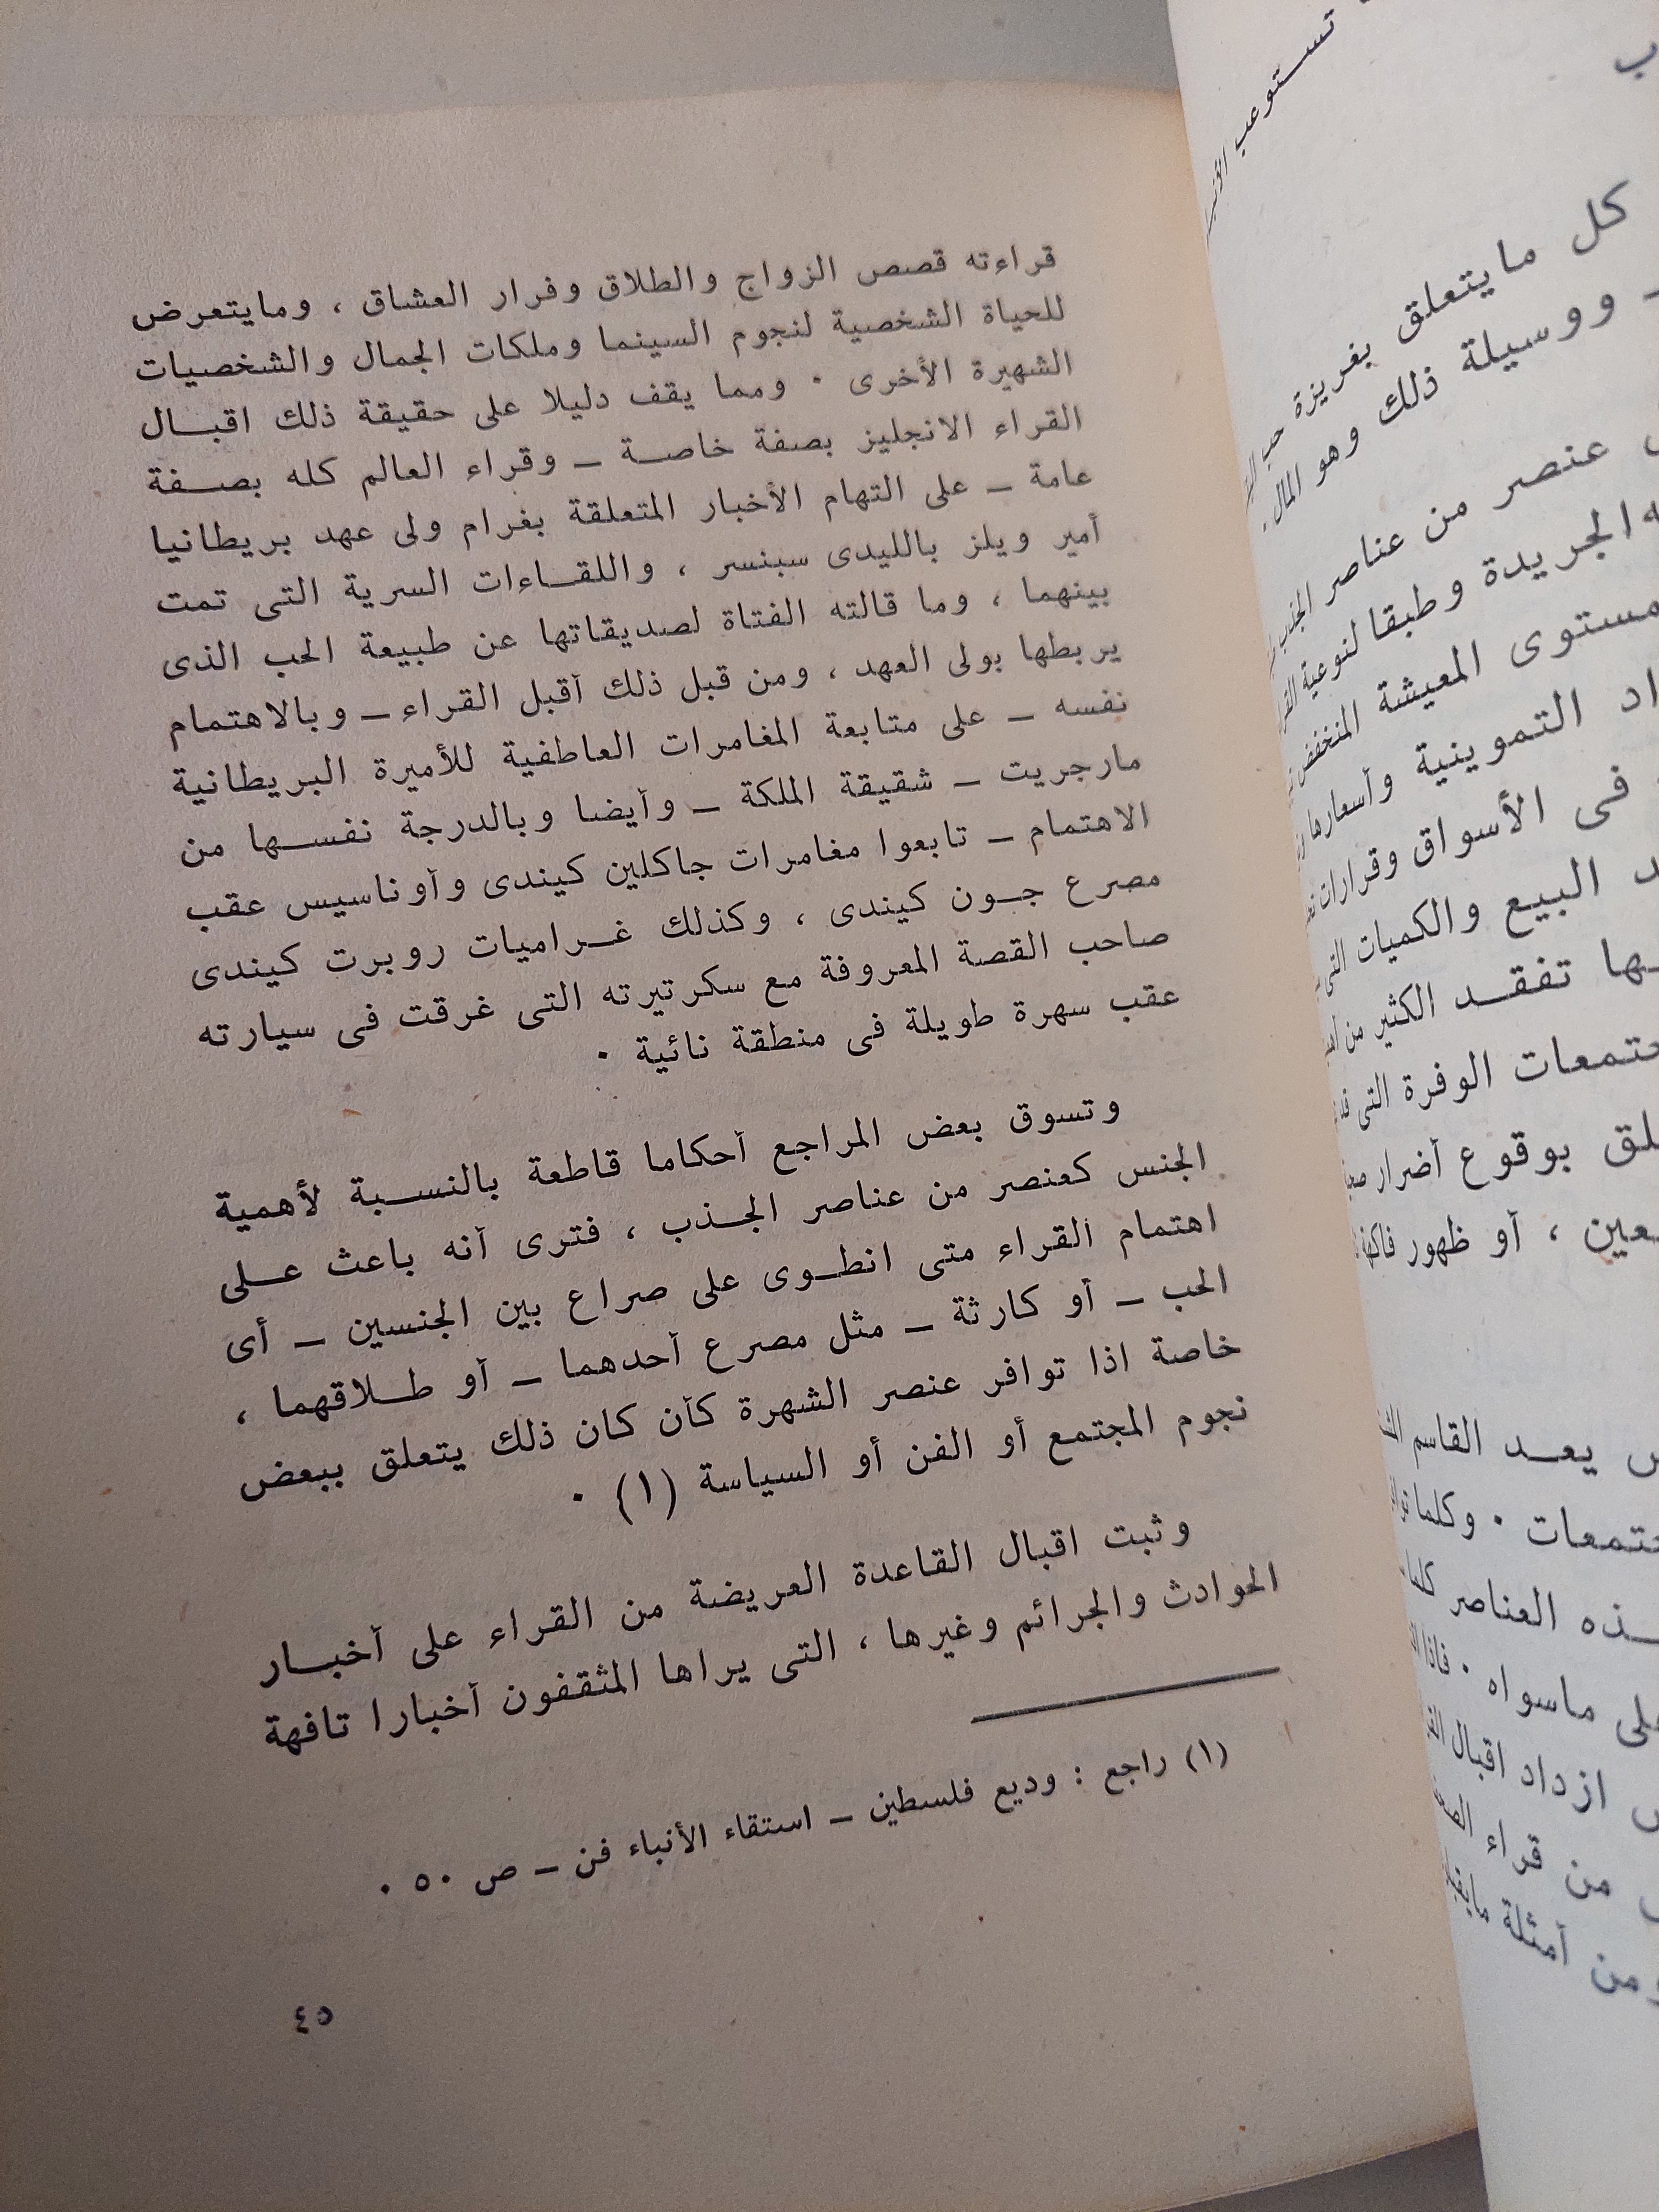 تستوعب
كل مايتعلق بغريزة حب
ووسيلة ذلك وهو المال .
عنصر من عناصر الجذب
الجريدة وطبقا لنوعية
مستوى المعيشة المنخفض
التموينية وأسعارها
فى الأسواق وقرارات
البيع والكميات التى
تفقــد الكثير من
الوفرة التى
بوقوع أضرار
، أو ظهور فاكهة
يعــد القاسم
. وكلما
العناصر
ماسواه . فاذا
ازداد اقبال
من قراء
ومن أمثلة
قراءته قصص الزواج والطلاق وفرار العشاق ، ومايتعرض
للحياة الشخصية لنجوم السينما وملكات الجمال والشخصيات
الشهيرة الأخرى . ومما يقف دليلا على حقيقة ذلك اقبــال
القراء الانجليز بصفة خاصــة ــ وقراء العالم كله بصــفة
عامة ــ على التهام الأخبار المتعلقة بغرام ولى عهد بريطانيا
أمير ويلز بالليدى سبنسر ، واللقــاءات السرية التى تمت
بينهما ، وما قالته الفتاة لصديقاتها عن طبيعة الحب الذى
يربطها بولى العهد ، ومن قبل ذلك أقبل القراء ــ وبالاهتمام
نفسه ــ على متابعة المغامرات العاطفية للأميرة البريطانية
مارجريت ــ شقيقة الملكة ــ وأيضا وبالدرجة نفســها من
الاهتمام ــ تابعوا مغامرات جاكلين كيندى وأوناسيس عقب
مصرع جــون كيندى ، وكذلك غــراميات روبرت كيندى
صاحب القصة المعروفة مع سكرتيرته التى غرقت فى سيارته
عقب سهرة طويلة فى منطقة نائية .
وتسوق بعض المراجع أحكاما قاطعة بالنســبة لأهمية
الجنس كعنصر من عناصر الجــذب ، فترى أنه باعث عــلى
اهتمام القراء متى انطــوى على صراع بين الجنسين ــ أى
الحب ــ أو كارثة ــ مثل مصرع أحدهما ــ أو طــلاقهما ،
خاصة اذا توافر عنصر الشهرة كأن كان ذلك يتعلق ببعض
نجوم المجتمع أو الفن أو السياسة (١) .
وثبت اقبال القاعدة العريضة من القراء على أخبــار
الحوادث والجرائم وغيرها ، التى يراها المثقفون أخبارا تافهة
(١) راجع : وديع فلسطين ــ استقاء الأنباء فن ــ ص ٥٠ .
٤٥